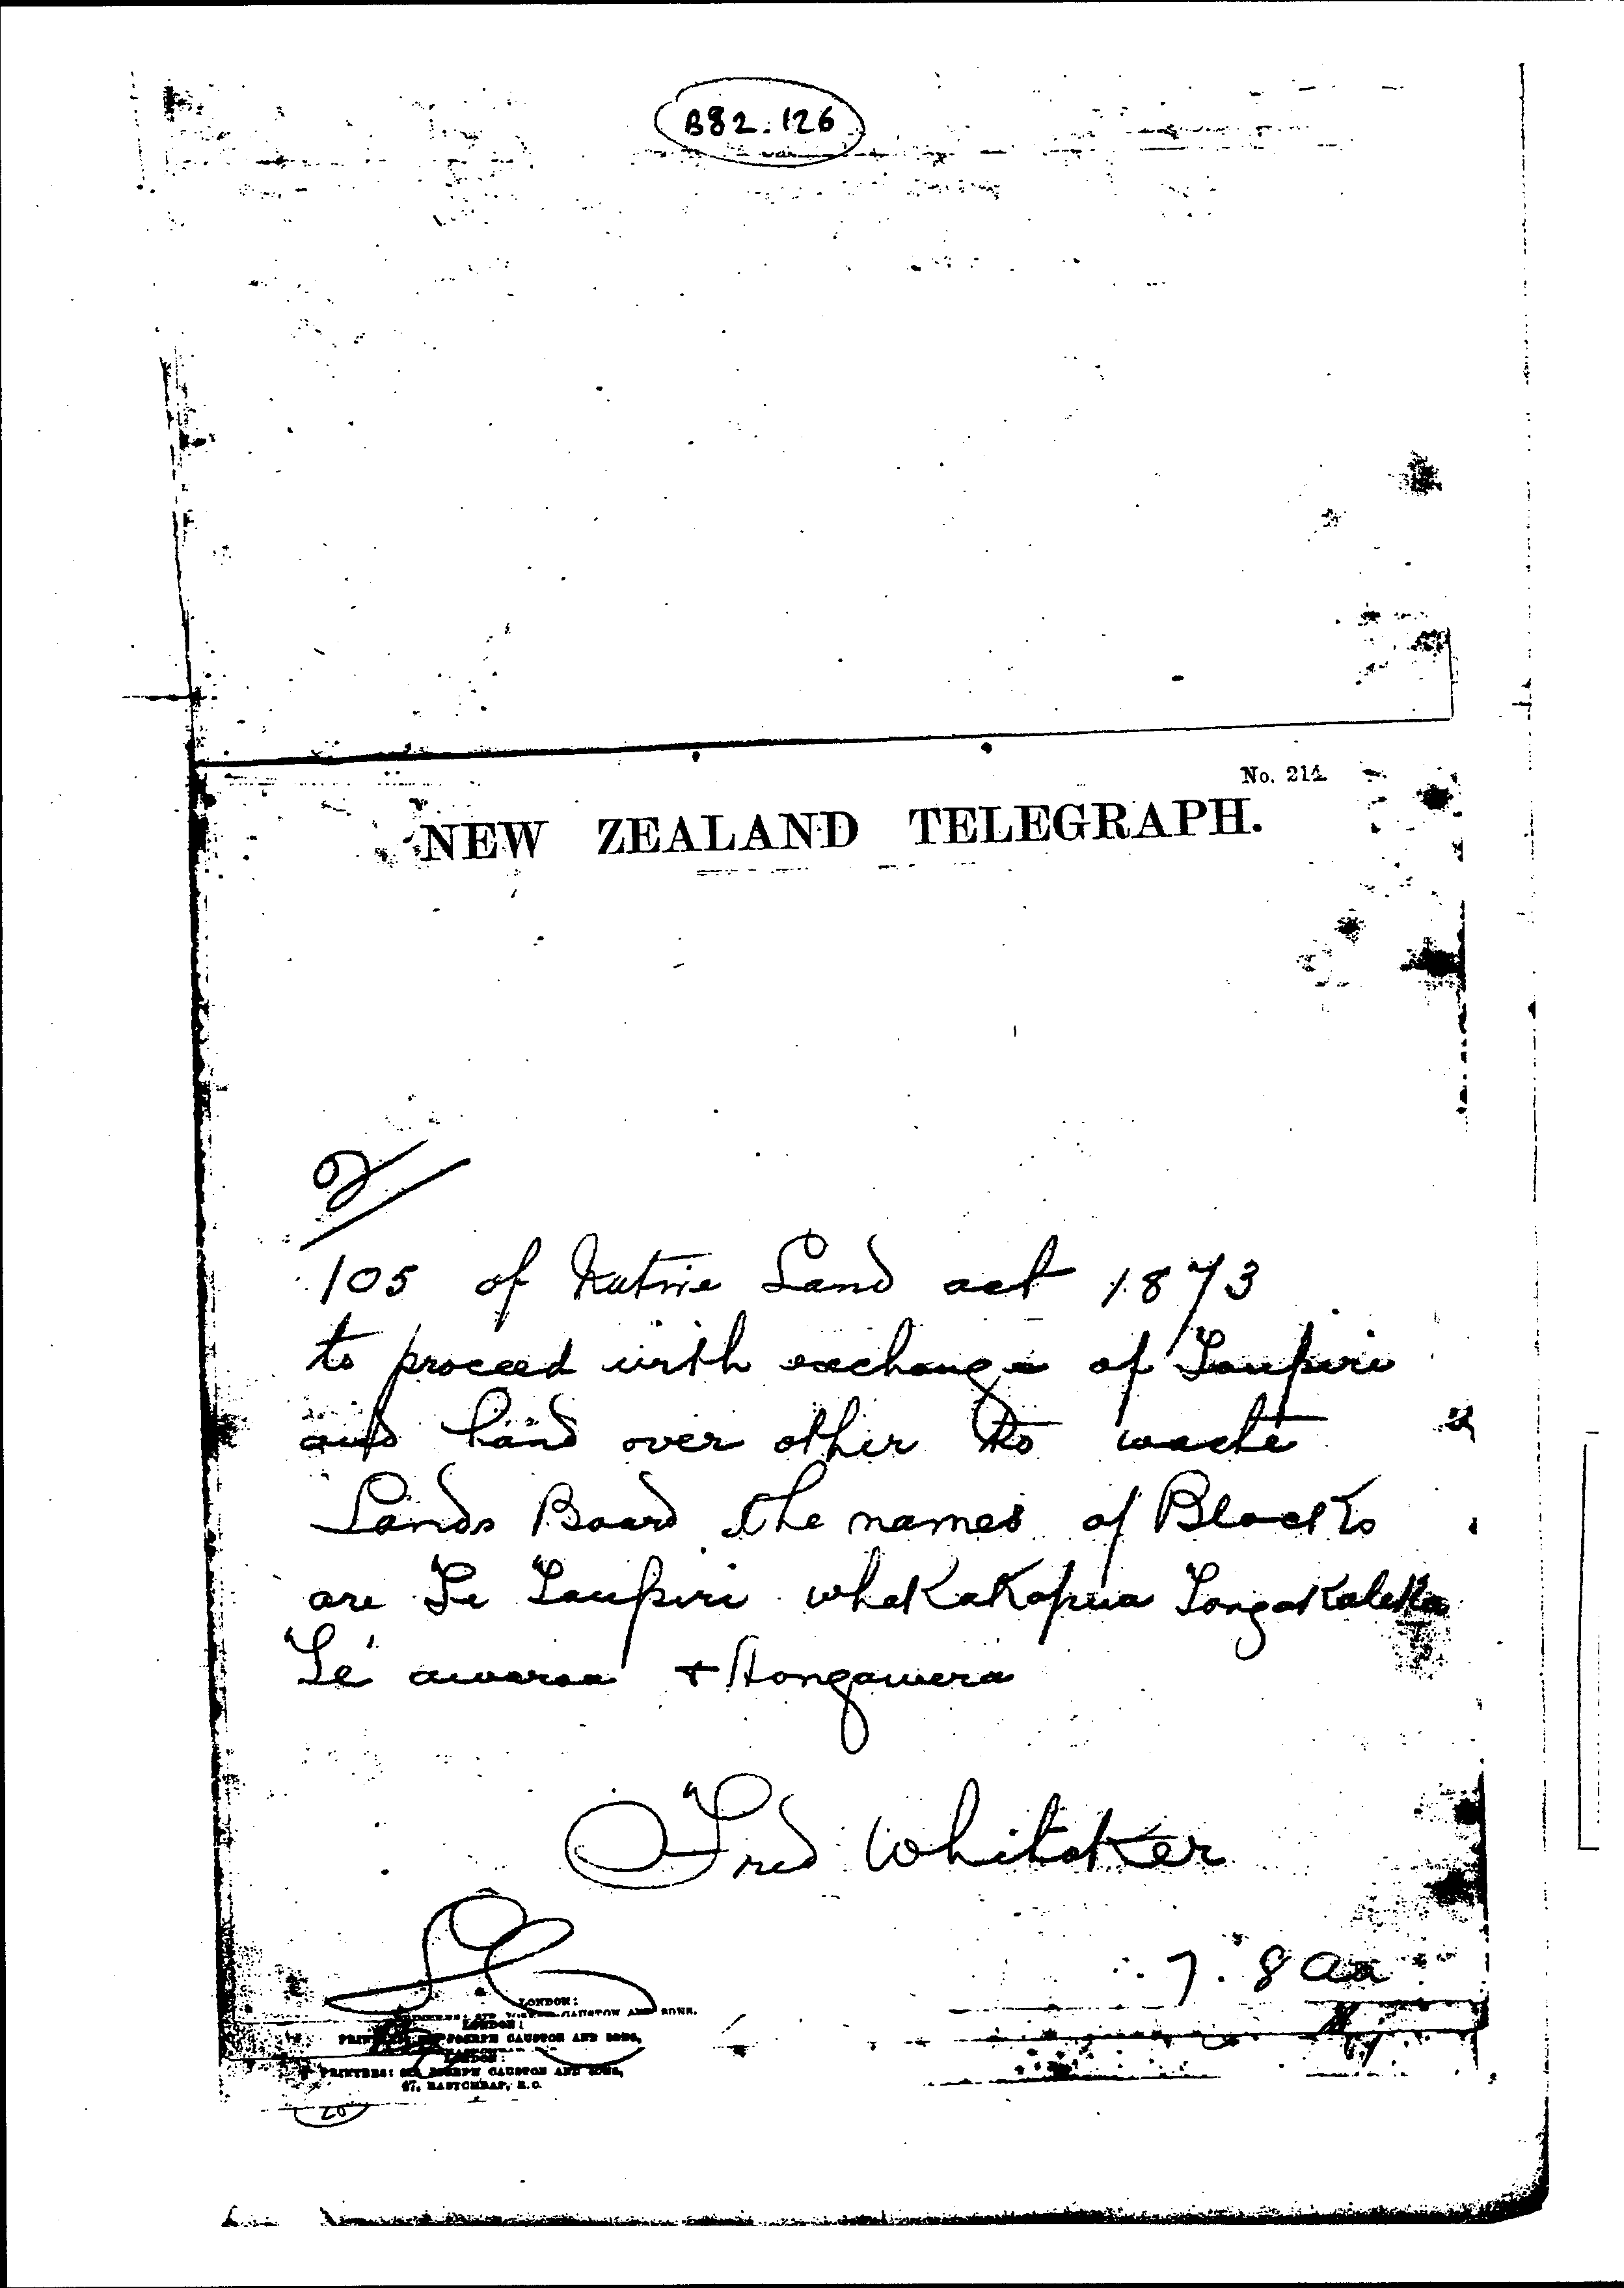 B82.126
No. 214
NEW ZEALAND TELEGRAPH.
2
105 of Native Land act 1873
to proceed with exchange of Taupiri
and hand over other to waste
Lands Board the names of Blocks
are Te Taupiri whakakapua
Te awaroa + Hongawera
Fred Whitaker
7.8
LONDON:
LONDON:
JOSEPH CAUSTON AND SONS,
LONDON:
PRINTERS: SIR JOSEPH CAUSTON AND SONS,
47, EASTCHEAP, E.C.
20